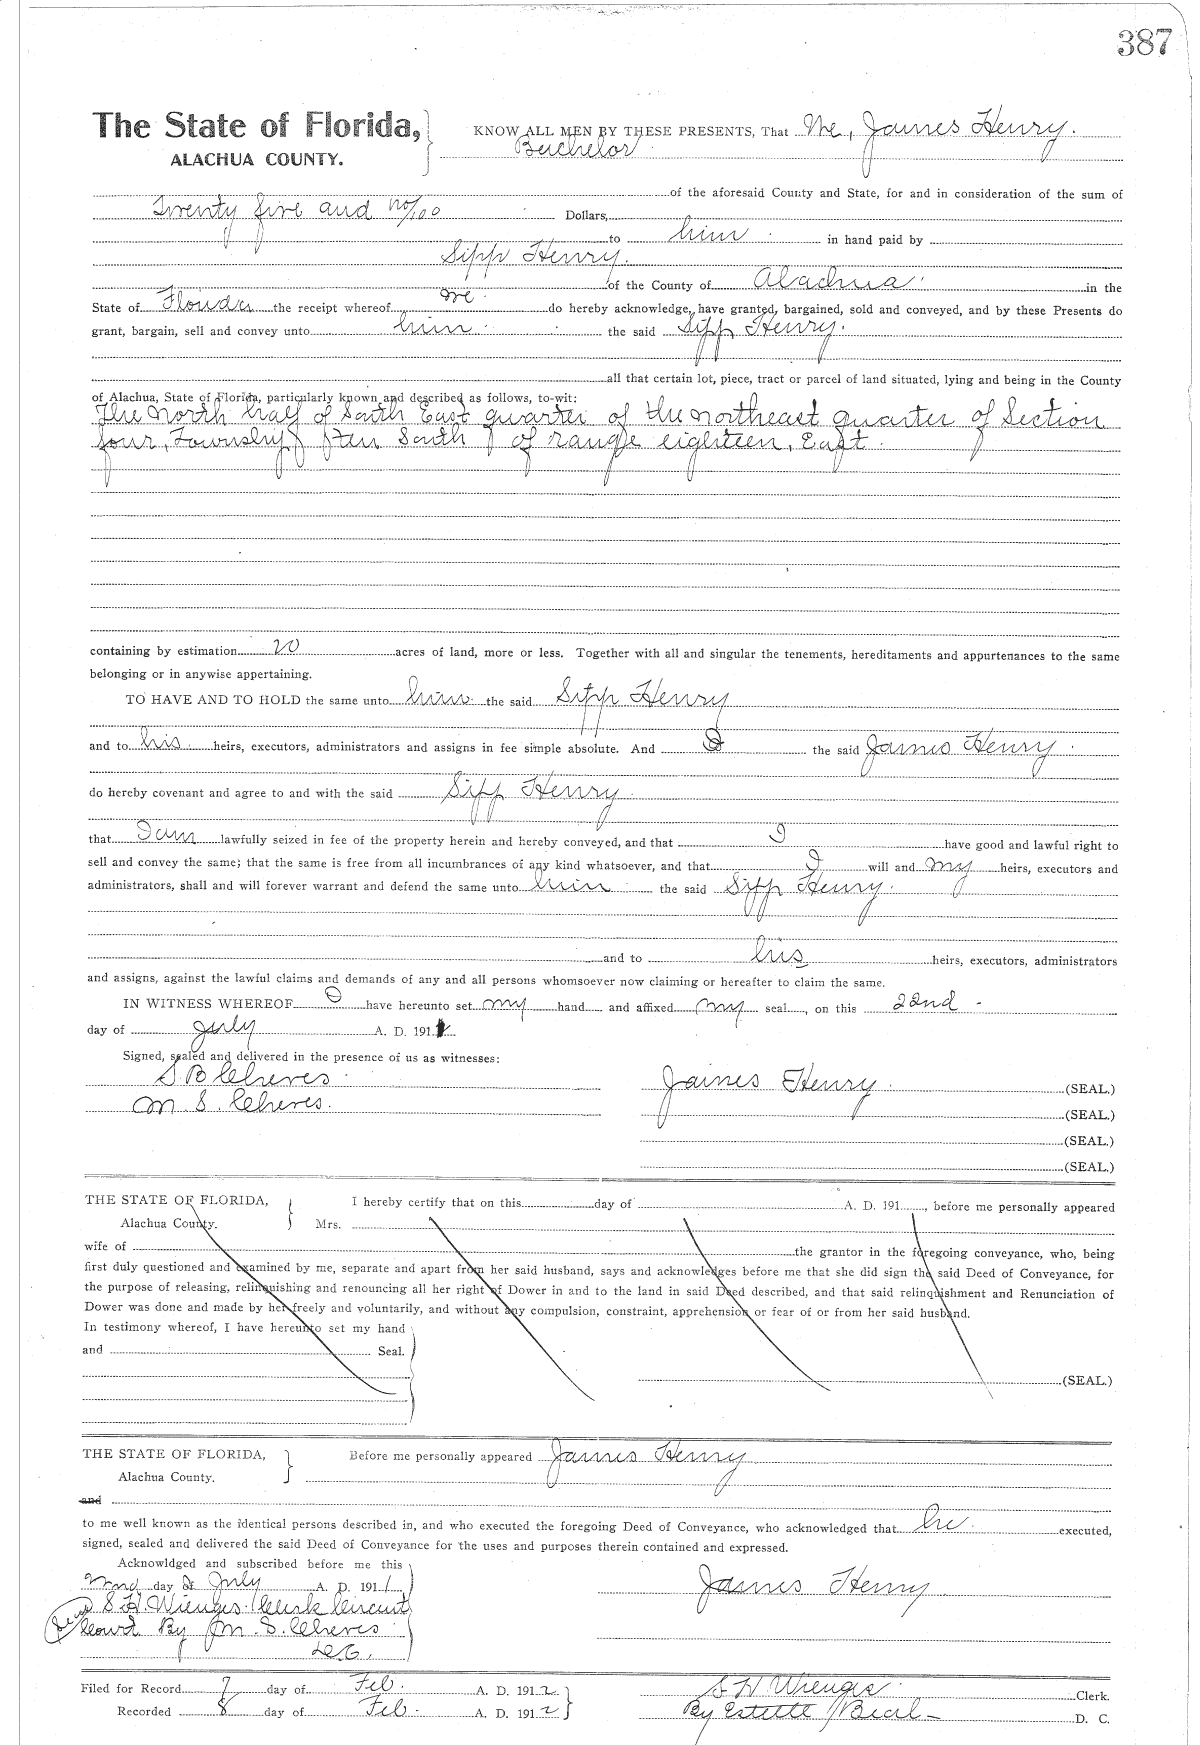 387
The State of Florida, KNOW ALL MEN BY THESE PRESENTS, That We, James Henry.
ALACHUA COUNTY. Bachelor
of the aforesaid County and State, for and in consideration of the sum of
Twenty five and no/100 Dollars,
to him in hand paid by
Sipp Henry.
of the County of Alachua in the
State of Florida the receipt whereof we do hereby acknowledge, have granted, bargained, sold and conveyed, and by these Presents do
grant, bargain, sell and convey unto him the said Sipp Henry.
all that certain lot, piece, tract or parcel of land situated, lying and being in the County
of Alachua, State of Florida, particularly known and described as follows, to-wit:
The North half of South East quarter of the northeast quarter of Section
four, Township ten South of range eighteen, East.
containing by estimation 20 acres of land, more or less. Together with all and singular the tenements, hereditaments and appurtenances to the same
belonging or in anywise appertaining.
TO HAVE AND TO HOLD the same unto him the said Sipp Henry
and to his heirs, executors, administrators and assigns in fee simple absolute. And I the said James Henry
do hereby covenant and agree to and with the said Sipp Henry
that I am lawfully seized in fee of the property herein and hereby conveyed, and that I have good and lawful right to
sell and convey the same; that the same is free from all incumbrances of any kind whatsoever, and that I will and my heirs, executors and
administrators, shall and will forever warrant and defend the same unto him the said Sipp Henry.
and to his heirs, executors, administrators
and assigns, against the lawful claims and demands of any and all persons whomsoever now claiming or hereafter to claim the same.
IN WITNESS WHEREOF I have hereunto set my hand and affixed my seal, on this 22nd
day of July A. D. 191
Signed, sealed and delivered in the presence of us as witnesses:
S B Cheves James Henry (SEAL.)
M. S. Cheves. (SEAL.)
(SEAL.)
(SEAL.)
THE STATE OF FLORIDA, I hereby certify that on this day of A. D. 191 , before me personally appeared
Alachua County. Mrs.
wife of the grantor in the foregoing conveyance, who, being
first duly questioned and examined by me, separate and apart from her said husband, says and acknowledges before me that she did sign the said Deed of Conveyance, for
the purpose of releasing, relinquishing and renouncing all her right of Dower in and to the land in said Deed described, and that said relinquishment and Renunciation of
Dower was done and made by her freely and voluntarily, and without any compulsion, constraint, apprehension or fear of or from her said husband.
In testimony whereof, I have hereunto set my hand
and Seal.
(SEAL.)
THE STATE OF FLORIDA, Before me personally appeared James Henry
Alachua County.
and
to me well known as the identical persons described in, and who executed the foregoing Deed of Conveyance, who acknowledged that he executed,
signed, sealed and delivered the said Deed of Conveyance for the uses and purposes therein contained and expressed.
Acknowldged and subscribed before me this
22nd day of July A. D. 1911 James Henry
S H Wienges Clerk Circuit
Court By M. S. Cheves
D.C.
Filed for Record 7 day of Feb. A. D. 1912 S H Wienges Clerk.
Recorded 8 day of Feb. A. D. 1912 By Estelle Beal D. C.